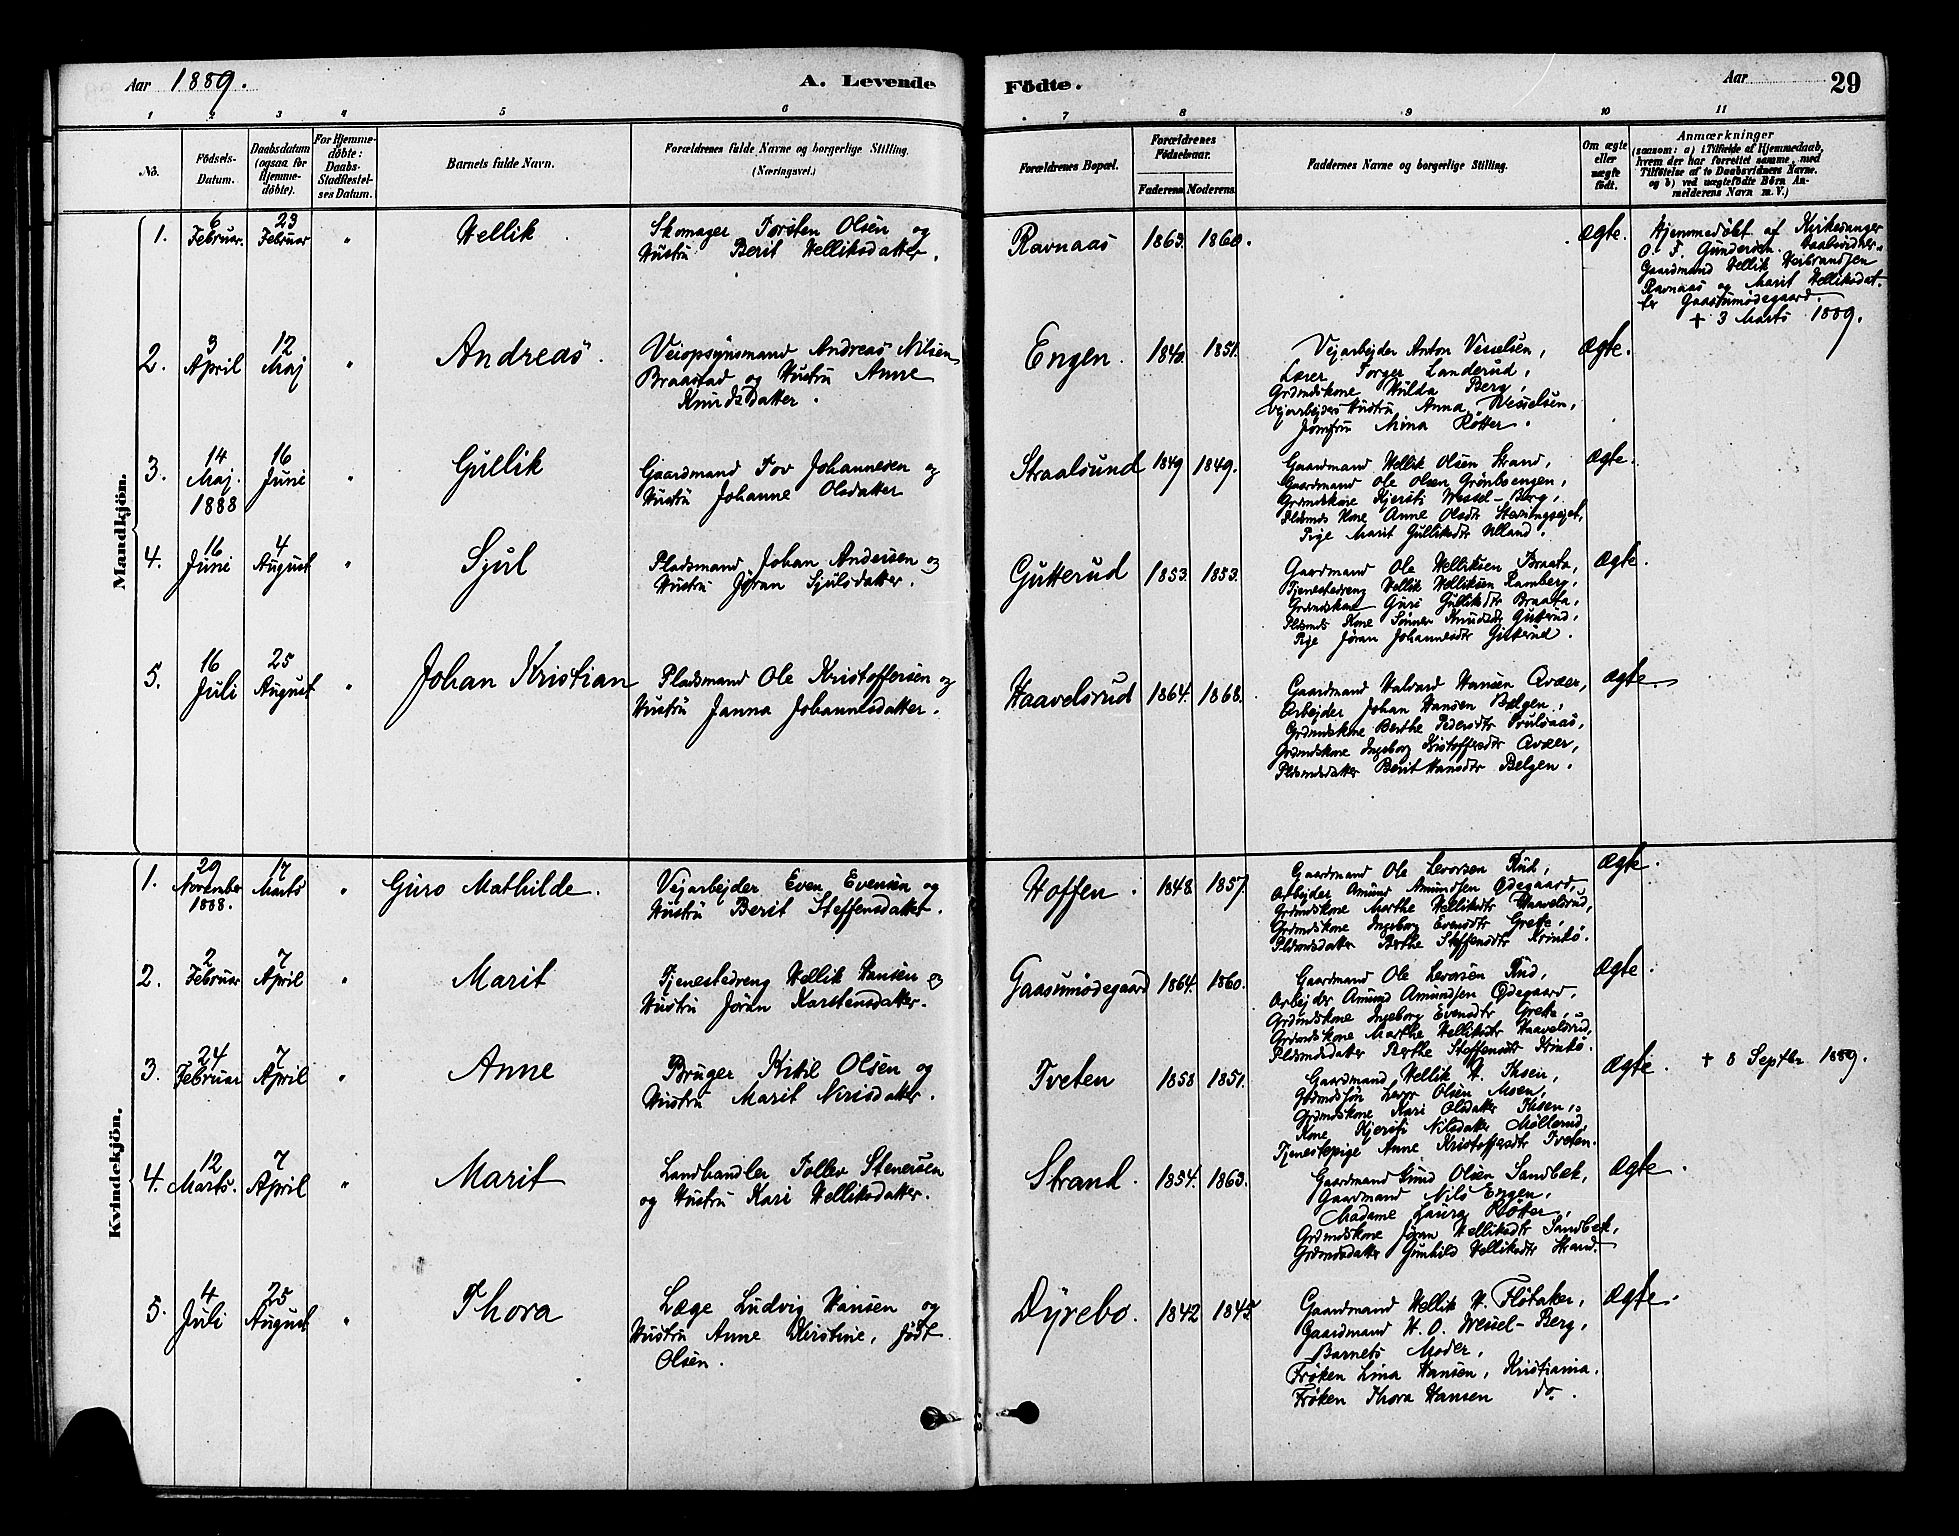 Aar 1889.
A. Levende
Födte.
Aar
29
1 2 3 4 5 6 7 8 9 10 11
No.
Födsels-
Datum.
Daabsdatum
(ogsaa for
Hjemme-
döbte).
For Hjemme-
döbte:
Daabs-
Stadfæstel-
ses Datum.
Barnets fulde Navn.
Forældrenes fulde Navne og borgerlige Stilling.
(Næringsvei.)
Forældrenes Bopæl.
Forældrenes
Födselsaar.
Faderens. Moderens.
Faddernes Navne og borgerlige Stilling.
Om ægte
eller
uægte
født.
Anmærkninger
(saasom: a) i Tilfælde af Hjemmedaab,
hvem der har forrettet samme, med
Tilföielse af to Daabsvidners Navne.
og b) ved uægtefödte Börn An-
melderens Navn m. V.)
Mandkjön.
1. 6 Februar. 23 Februar " Hellik
Skomager Torsten Olsen og
Hustru Berit Helliksdatter.
Ravnaas 1863. 1860.
ægte.
Hjemmedøbt af Kirkesanger
O. F. Gundersen. Daabsvidner:
Gaardmand Hellik Herbrandsen
Ravnaas og Marit Helliksdat-
ter Gaasumødegaard.
† 3 Marts 1889.
2. 3 April 12 Maj " Andreas.
Veiopsynsmand Andreas Nilsen
Braastad og Hustru Anne
Knudsdatter.
Engen. 1840. 1851.
Vejarbejder Anton Vesselsen,
Lærer Torger Landerud,
Grdmdskone Hulda Berg,
Vejarbejders Hustru Anna Wesselsen,
Jomfru Mina Rotter.
Ægte.
3. 14 Maj. 1888 16 Juni " Gullik
Gaardmand Tov Johannesen og
Hustru Johanne Olsdatter
Straalsund 1849 1849.
Gaardmand Hellik Olsen Strand,
Gaardmand Ole Olsen Grønboengen,
Grdmdskone Kjersti Wessel-Berg,
Pldsmds Kone Anne Olsdtr
Pige Marit Gulliksdtr Ulland.
Ægte.
4. 16 Juni 4 August " Sjul
Pladsmand Johan Andersen og
Hustru Jøran Sjulsdatter.
Gutterud 1853. 1853.
Gaardmand Ole Helliksen Braata,
Tjenestedreng Hellik Helliksen Ramberg,
Grdmdskone Guri Gulliksdtr Braata,
Pldsmds Kone Sønnev Knudsdtr Gutterud,
Pige Jøran Johannesdtr Gutterud.
Ægte.
5. 16 Juli 25 August " Johan Kristian
Pladsmand Ole Kristoffersen og
Hustru Janna Johannesdatter.
Haavelsrud 1864. 1868.
Gaardmand Halvard Hansen Qvæer,
Arbejder Johan Hansen Bælgen,
Grdmdskone Berthe Pedersdtr
Grdmdskone Ingeborg Kristoffersdtr Qvæer,
Pldsmdsdatter Berit Hansdtr Belgen.
Ægte.
Kvindekjön.
1. 29 November 1888. 17 Marts " Guro Mathilde.
Vejarbejder Even Evensen og
Hustru Berit Steffensdatter.
Hoffen. 1848. 1857.
Gaardmand Ole Levorsen Rud,
Arbejder Amund Amundsen Ødegaard,
Grdmdskone Marthe Helliksdtr Haavelsrud,
Grdmdskone Ingeborg Evensdtr Grette,
Pldsmdsdatter Berthe Steffensdtr Krinkø.
Ægte.
2. 2 Februar 7 April " Marit
Tjenestedreng Hellik Hansen og
Hustru Jøran Karstensdatter.
Gaasumødegaard 1864. 1860.
Gaardmand Ole Levorsen Rud,
Arbejder Amund Amundsen Ødegaard,
Grdmdskone Ingeborg Evensdtr Grette,
Grdmdskone Marthe Helliksdtr Haavelsrud,
Pldsmdsdatter Berthe Steffensdtr Krinkø.
Ægte.
3. 24 Februar 7 April " Anne
Bruger Kitil Olsen og
Hustru Marit Nirisdatter.
Tveten 1858 1851.
Gaardmand Hellik H. Ihsen,
Grdmdssøn Levor Olsen Moen,
Grdmdskone Kari Olsdatter Ihsen,
Kone Kjersti Nilsdatter Møllerud,
Tjenestepige Anne Kristoffersdtr Tveten.
Ægte.
† 8 Septbr. 1889.
4. 12 Marts. 7 April " Marit
Landhandler Tollev Stenersen
og Hustru Kari Helliksdatter.
Strand. 1854. 1863.
Gaardmand Gund Olsen Sandbæk,
Gaardmand Nils Engen,
Madame Laura Rotter,
Grdmdskone Jøran Helliksdtr Sandbæk,
Grdmdsdatter Gunhild Helliksdtr Strand.
Ægte.
5. 4 Juli 25 August " Thora
Læge Ludvig Hansen og
Hustru Anne Kirstine, født
Olsen.
Dyrebo. 1842 1845
Gaardmand Hellik H. Flotaker,
Gaardmand H. O. Wessel-Berg,
Barnets Moder,
Frøken Lina Hansen, Kristiania.
Frøken Thora Hansen do.
Ægte.